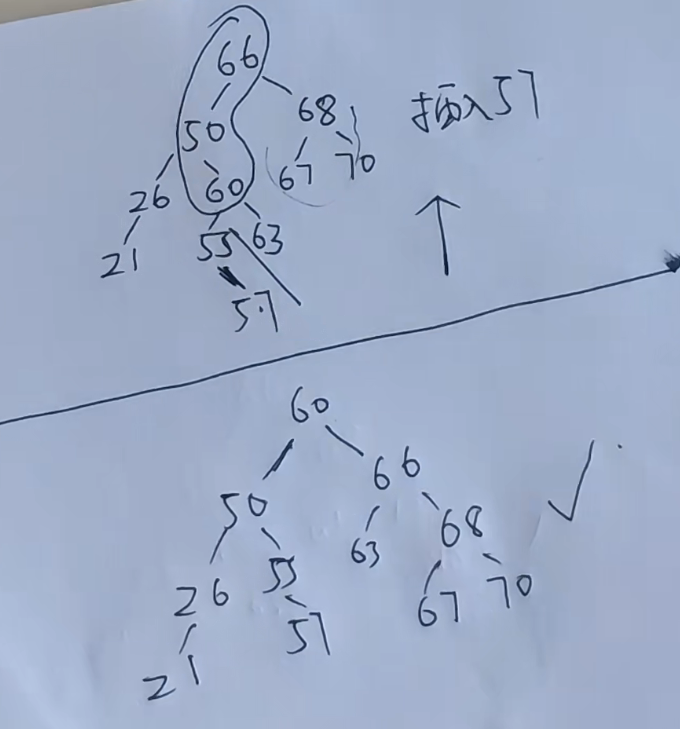 66
50 68 插入57
26 60 67 70
21 55 63
57
60
50 66
26 55 63 68
21 57 67 70